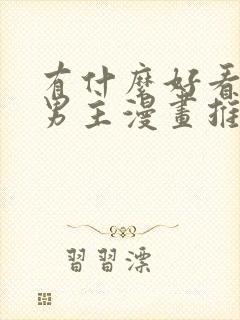 有什麼好看
男主漫畫推
習習漂